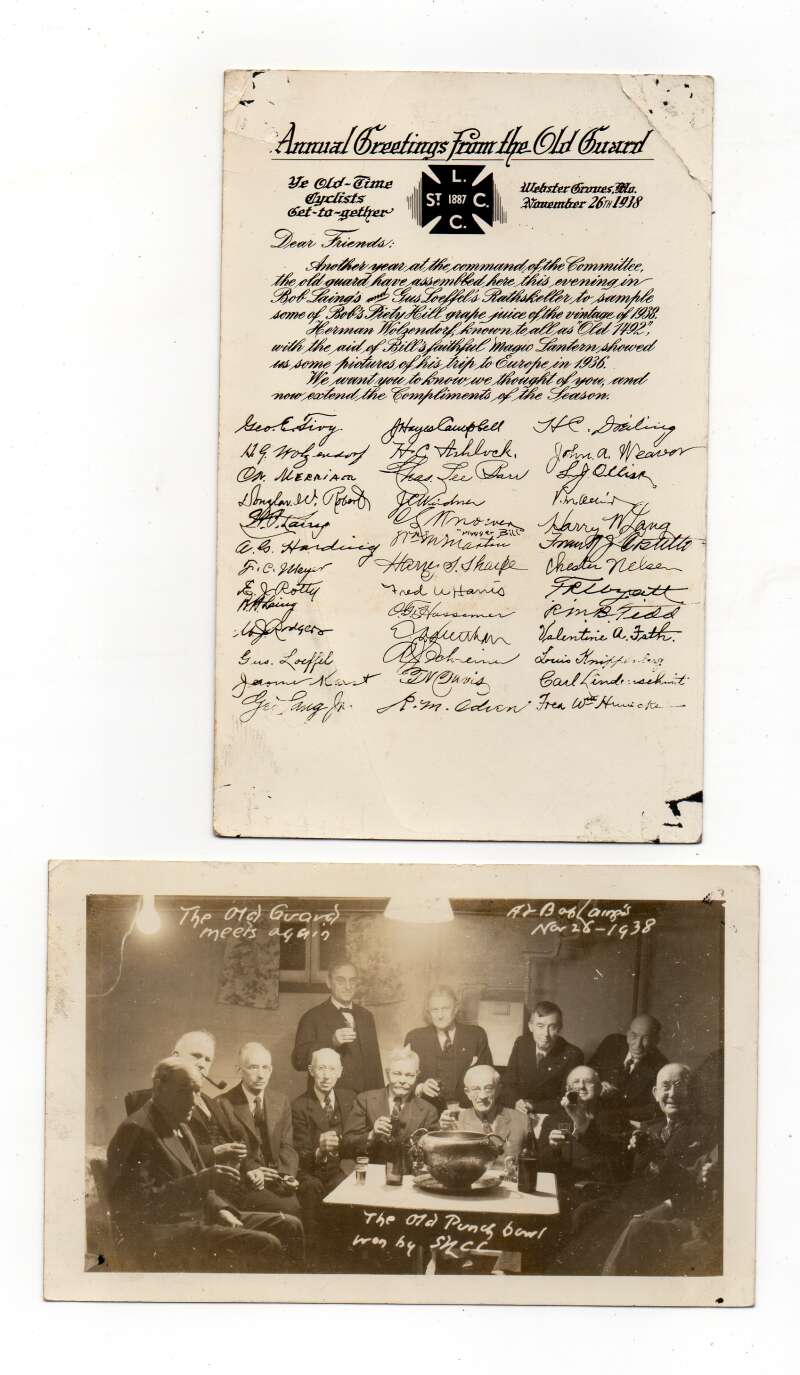 Annual Greetings from the Old Guard
Ye Old-Time
Cyclists
Get-to-gether
L.
ST 1887 C.
C.
Webster Groves, Mo.
November 26TH 1938
Dear Friends:
Another year at the command of the Committee,
the old guard have assembled here this evening in
Bob Laing's and Gus Loeffel's Rathskeller to sample
some of Bob's Piety Hill grape juice of the vintage of 1938.
Herman Wolzendorf, known to all as "Old 1492",
with the aid of Bill's faithful Magic Lantern showed
us some pictures of his trip to Europe in 1936.
We want you to know we thought of you, and
now extend the Compliments of the Season.
Geo. E. Tivy.
J Hayes Campbell
H.C. Dörling
H.G. Wolzendorf
H.C. Ashlock.
John A. Weaver
O.K. Merriam
Chas. Lee Barr
L J Ollier
Douglas W. Robert
J.C. Windner
Harry N Lang
A.G. Harding
Wm M Martin "Magic Bill"
Frank J.
F. C. Meyer
Harry S. Sharpe
Chester Nelsen
E. J. Rotty
Fred W Harris
F R Wyatt
R A Laing
O.G. Hassemer
R.M.B. Tidd
W J Rodgers
Valentine A. Fath.
Gus. Loeffel
Louis Knippenberg
Jerome Karst
F.W. Davis
Carl Lindenschmit
Geo Lang Jr.
R. M.
Fred Wm
The Old Guard
meets again
At Bob Laing's
Nov 26-1938
The Old Punch bowl
won by StLCC